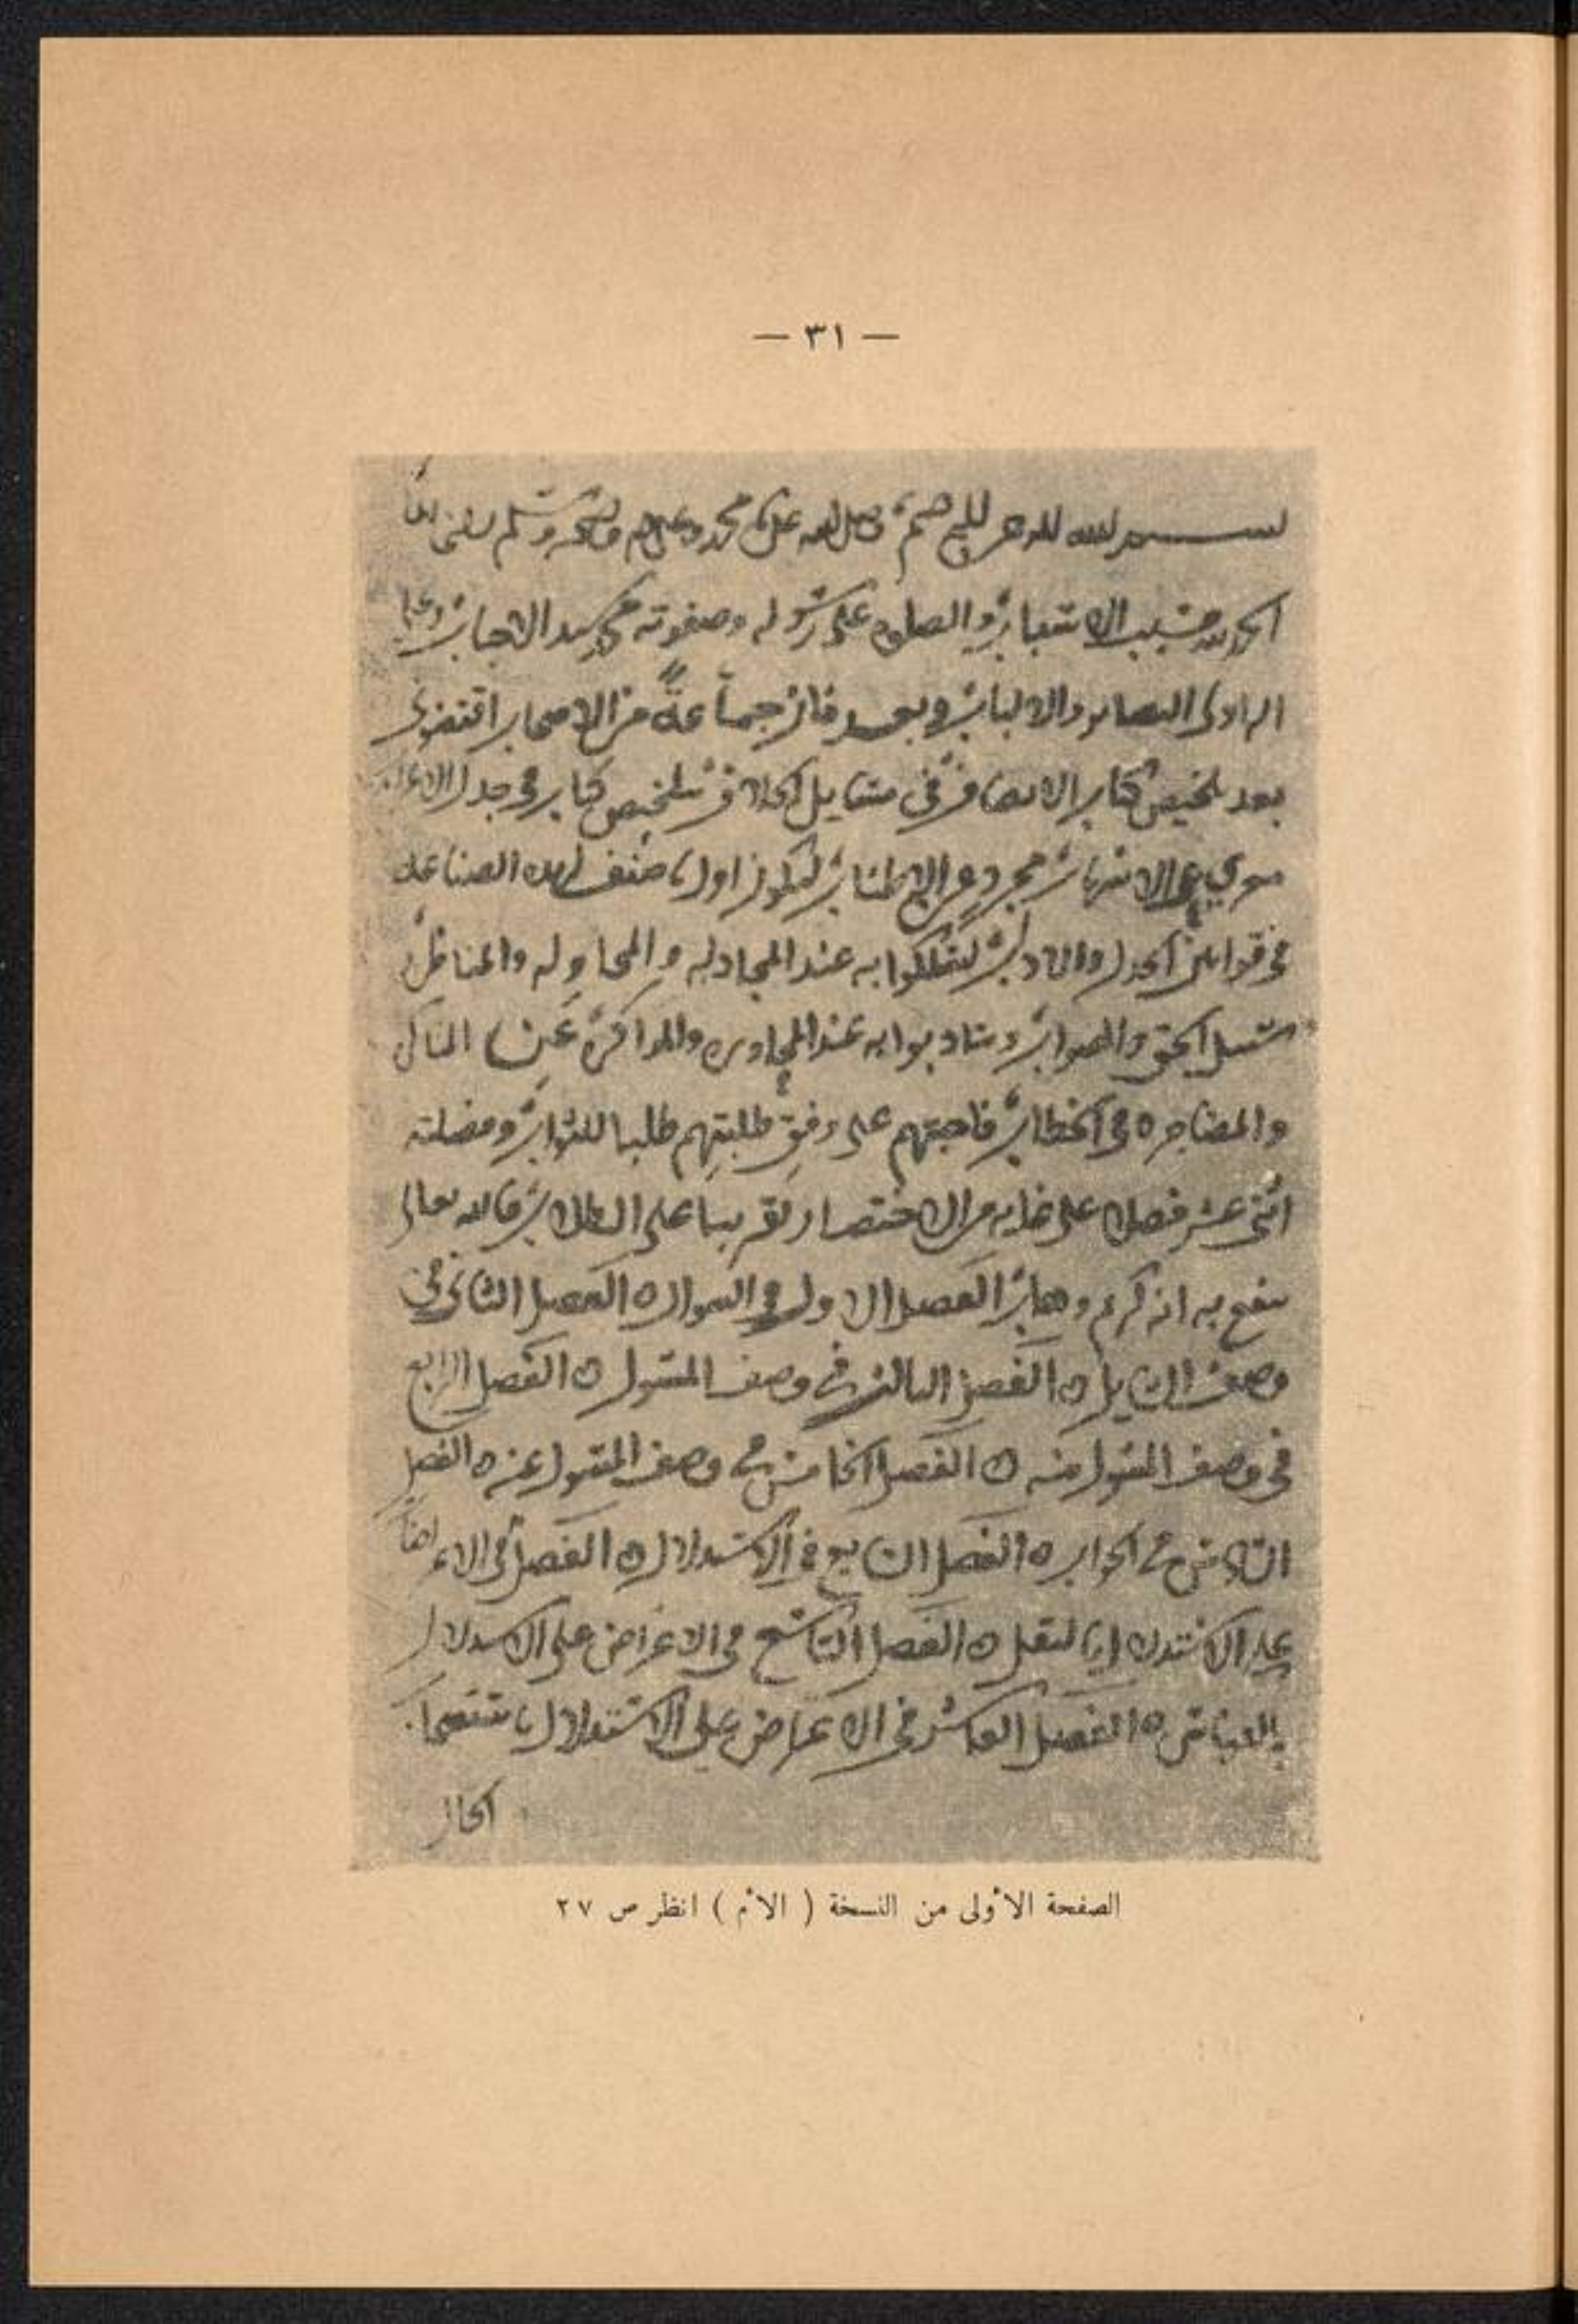 — ٣١ —
بسم الله الرحمن الرحيم وصلى الله على محمد وعلى اله وصحبه وسلم
الحمد لله مسبب الاسباب والصلوة على رسوله وصفوته محمد سيد الاحباب وعلى
اله اولى البصاير والالباب وبعد فان جماعة من الاصحاب اقتضونى
بعد تلخيص كتاب الانصاف فى مسايل الخلاف تلخيص كتاب فى جدل الاعراب
معرى عن الاسهاب مجرد عن الاطناب ليكون اول ما صنف لهذه الصناعة
فى قوانين الجدل والاداب ليسلكوا به عند المجادلة والمحاولة والمناظرة
سبيل الحق والصواب ويتادبوا به عند المحاورة والمذاكرة عن المناكرة
والمضاجرة فى الخطاب فاجبتهم على وفق طلبتهم طلبا للثواب وفصلته
اثنى عشر فصلا على غاية من الاختصار تقريبا على الطلاب فالله تعالى
ينفع به انه كريم وهاب الفصل الاول فى السوال ه الفصل الثانى فى
وصف السايل ه الفصل الثالث فى وصف المسول ه الفصل الرابع
فى وصف المسول منه ه الفصل الخامس فى وصف المسول عنه ه الفصل
السادس فى الجواب ه الفصل السابع فى الاستدلال ه الفصل فى الاعتراض
على الاستدلال بالنقل ه الفصل التاسع فى الاعتراض على الاستدلال
بالقياس ه الفصل العاشر فى الاعتراض على الاستدلال باستصحاب
الحال
الصفحة الأولى من النسخة ( الأم ) انظر ص ٢٧